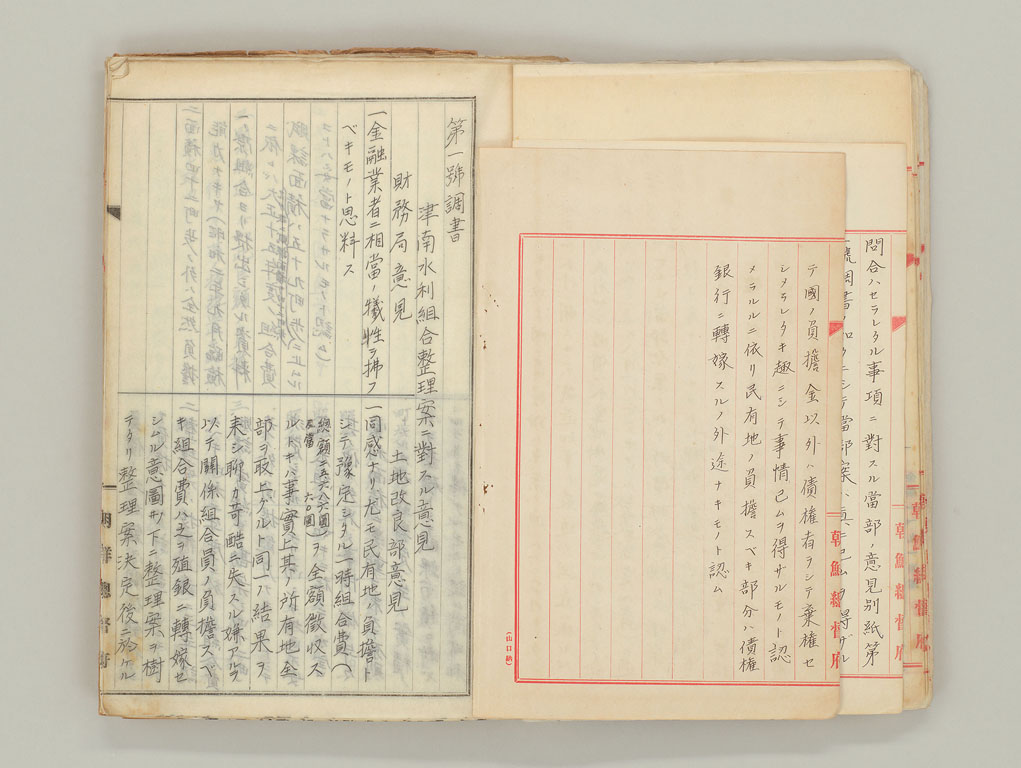 問合ハセラレタル事項ニ對スル當部ノ意見別紙第
テ國ノ負擔金以外ハ債權者ヲシテ棄權セ
シメラレタキ趣ニシテ事情已ムヲ得サルモノト認
メラルルニ依リ民有地ノ負擔スベキ部分ハ債權
銀行ニ轉嫁スルノ外途ナキモノト認ム
朝鮮總督府
朝鮮總督府
(山口納)
第一號調書
津南水利組合整理案ニ對スル意見
財務局意見
一金融業者ニ相當ノ犧牲ヲ拂フ
ベキモノト思料ス
土地改良部意見
一同感ナリ尤モ民有地ノ負擔ト
シテ豫定シタル一時組合費(
總額二五六八六圓
反當 六〇圓)ヲ全額徴收ス
ルトキハ事實上其ノ所有地全
部ヲ取上グルト同一ノ結果ヲ
來シ聊カ苛酷ニ失スル嫌アルヲ
以テ關係組合員ノ負擔スベ
キ組合費ハ之ヲ殖銀ニ轉嫁セ
シムル意圖ノ下ニ整理案ヲ樹
テタリ整理案決定後ニ於ケル
朝鮮總督府